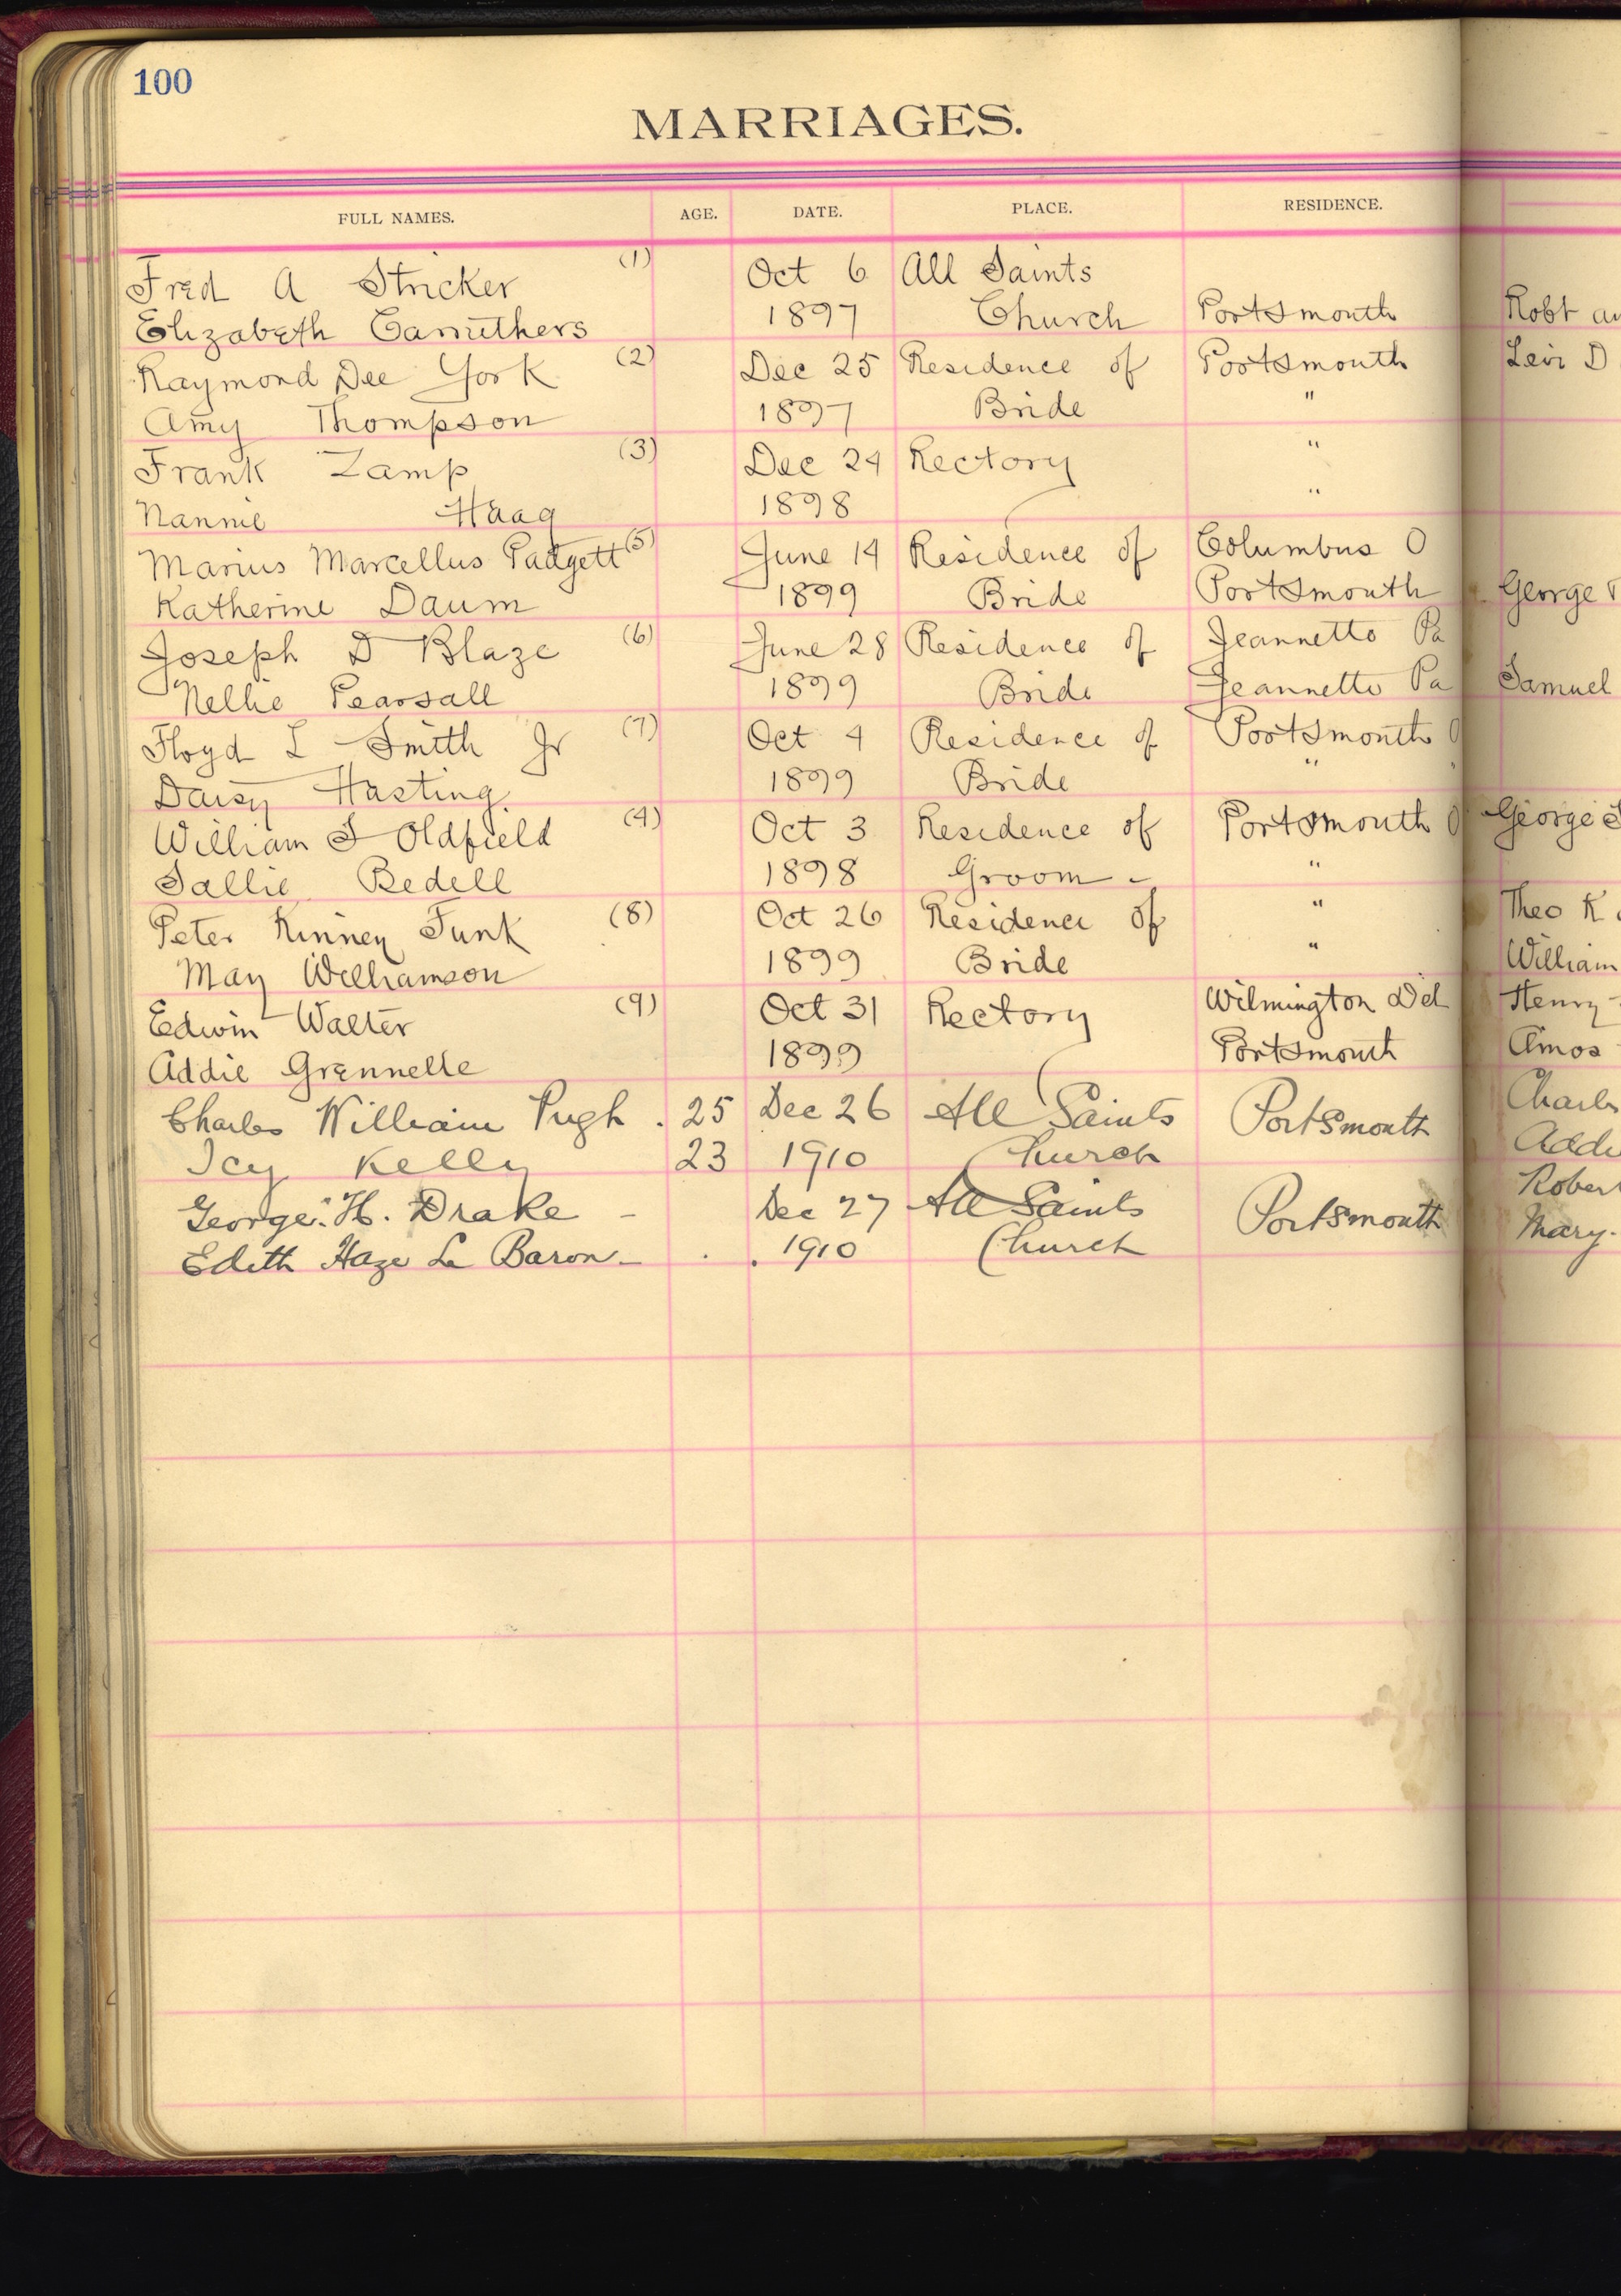 100
MARRIAGES.
FULL NAMES. AGE. DATE. PLACE. RESIDENCE.
Fred A Stricker (1) Oct 6 All Saints
Elizabeth Carruthers 1897 Church Portsmouth Robt
Raymond Dee York (2) Dec 25 Residence of Portsmouth Levi D
Amy Thompson 1897 Bride "
Frank Zamp (3) Dec 24 Rectory "
Nannie Haag 1898 "
Marius Marcellus Padgett (5) June 14 Residence of Columbus O
Katherine Daum 1899 Bride Portsmouth George
Joseph D Blaze (6) June 28 Residence of Jeannette Pa
Nellie Pearsall 1899 Bride Jeannette Pa Samuel
Floyd L Smith Jr (7) Oct 4 Residence of Portsmouth O
Daisy Hasting 1899 Bride " "
William S Oldfield (4) Oct 3 Residence of Portsmouth O George
Sallie Bedell 1898 Groom - "
Peter Kinney Funk (8) Oct 26 Residence of " Theo K
May Williamson 1899 Bride " William
Edwin Walter (9) Oct 31 Rectory Wilmington Del Henry
Addie Grennelle 1899 Portsmouth Amos
Charles William Pugh . 25 Dec 26 All Saints Portsmouth Charles
Icy Kelly 23 1910 Church Addi
George. H. Drake - Dec 27 All Saints Portsmouth Robert
Edith Haze La Baron - . . 1910 Church Mary.